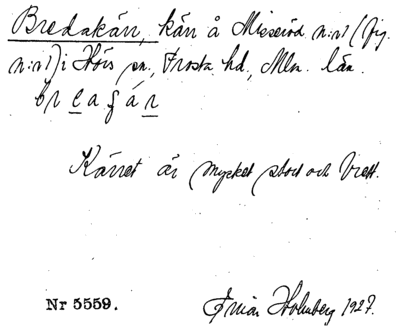 Bredakärr, kärr å Misseröd n:r 1 (fig.
n:r 1) i Hörs sn., Frosta hd, Mlm. län.
Kärret är mycket stort och brett.
Nr 5559. Holmberg 1927.